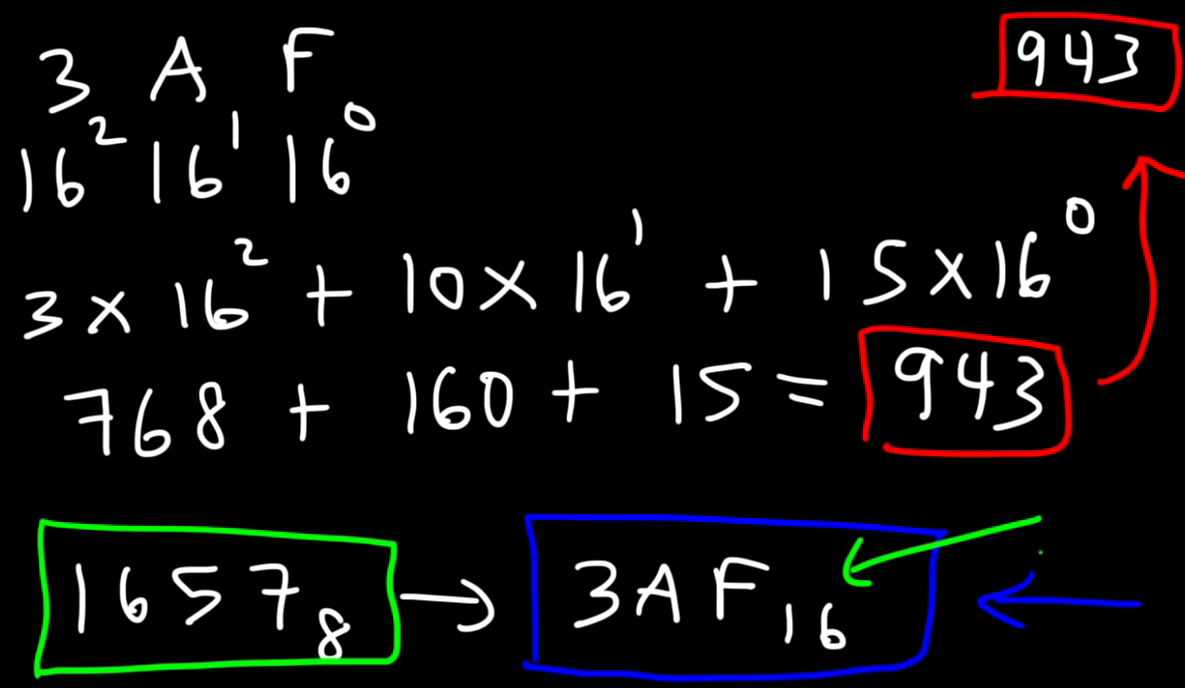 943
3 A F
16² 16¹ 16⁰
3 × 16² + 10 × 16¹ + 15 × 16⁰
768 + 160 + 15 = 943
1657₈ → 3AF₁₆